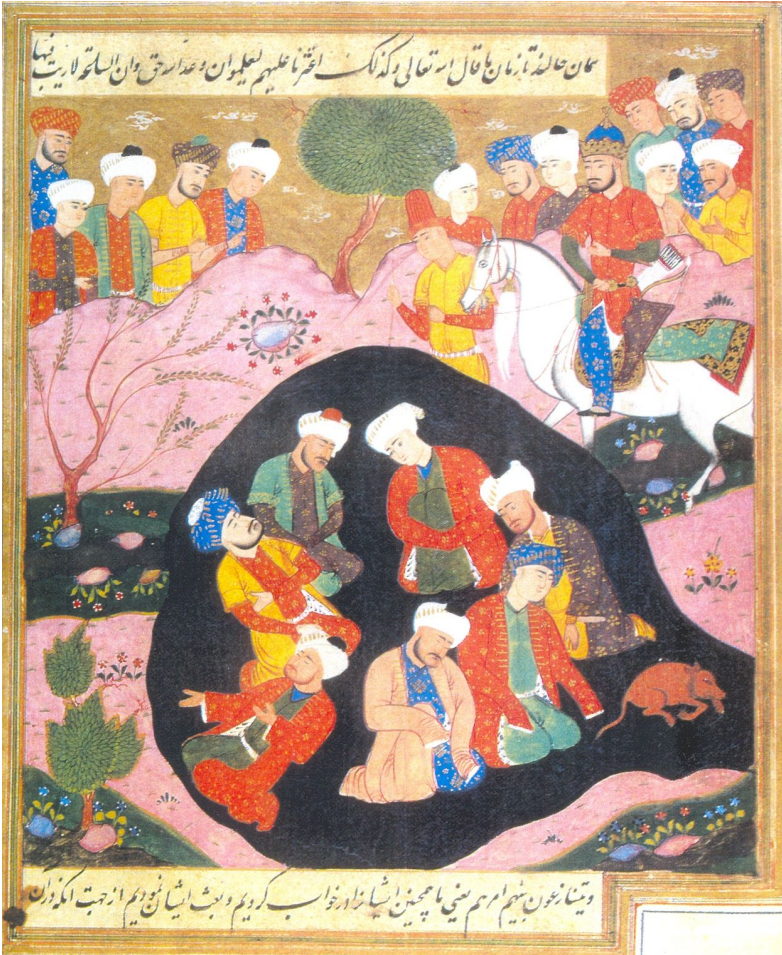 سمان حالند تا زمان ما قال الله تعالی و کذلک اعثرنا علیهم لیعلموا ان وعد الله حق وان الساعة لا ریب فیها
و یتنازعون بینهم امرهم یعنی ما همچنین ایشانرا در خواب کردیم و بعث ایشان نمودیم از جهت آنکه زران